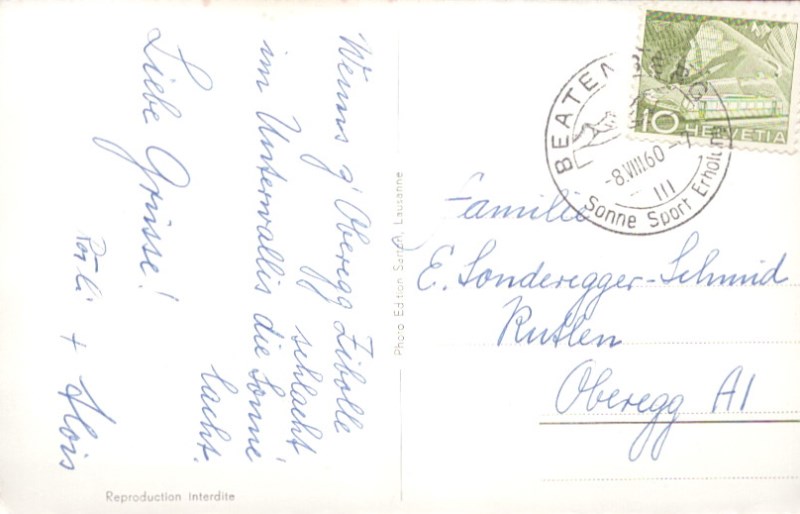 Wenns z' Oberegg Zibolle
schlacht
im Unterwallis die Sonne
lacht.
Liebe Grüsse!
Röзli + Alois
Photo Edition Sartori, Lausanne
Reproduction interdite
BEATENBERG
-8.VIII.60-7
III
Sonne Sport Erholung
10 HELVETIA
Familie
E. Sonderegger-Schmid
Rutlen
Oberegg AI